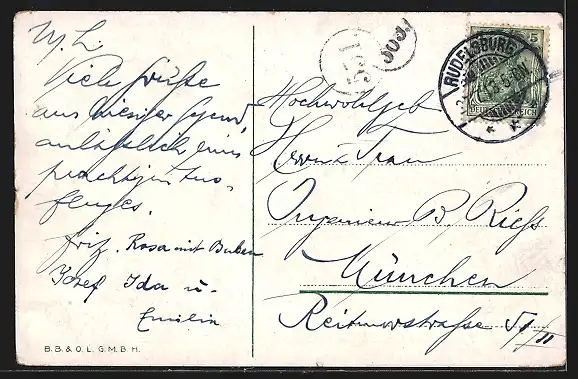 M. L.
Viele Grüße
aus hiesiger Gegend
anlässlich eines
prachtigen Aus-
fluges.
Fritz. Rosa mit Buben
Josef Ida u.
Emilia
B.B.&O.L.G.M.B.H.
551
RUDELSBURG
5
DEUTSCHES REICH
Hochwohlgeb
Herrn u Frau
Ingenieur B. Rieß
München
Reitmorstraße 51/II